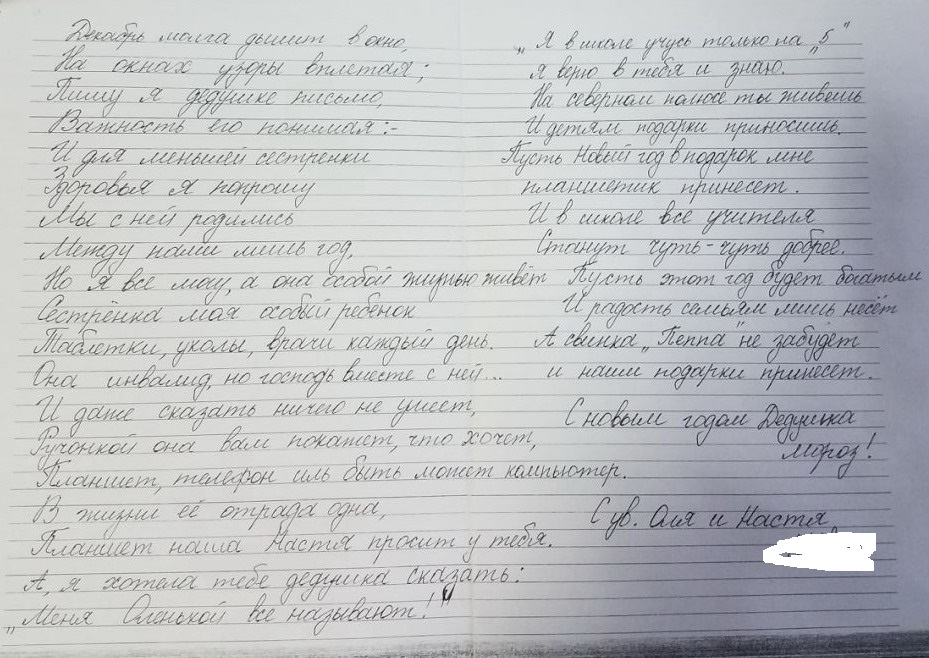 Декабрь молча дышит в окно,
На окнах узоры вплетая;
Пишу я дедушке письмо,
Важность его понимая:-
И для меньшей сестренки
Здоровья я попрошу
Мы с ней родились
Между нами лишь год,
Но я все могу, а она особой жизнью живёт
Сестрёнка моя особый ребенок
Таблетки, уколы, врачи каждый день.
Она инвалид, но господь вместе с ней...
И даже сказать ничего не умеет,
Ручонкой она вам покажет, что хочет,
Планшет, телефон иль быть может компьютер.
В жизни её отрада одна,
Планшет наша Настя просит у тебя.
А, я хотела тебе дедушка сказать:
„Меня Оленькой все называют!"
„Я в школе учусь только на „5"
Я верю в тебя и знаю.
На северном полюсе ты живешь
И детям подарки приносишь.
Пусть Новый год в подарок мне
планшетик принесет.
И в школе все учителя
Станут чуть-чуть добрее.
Пусть этот год будет богатым
И радость семьям лишь несёт
А свинка „Пеппа" не забудет
и наши подарки принесет.
С новым годом Дедушка
мороз!
С ув. Оля и Настя